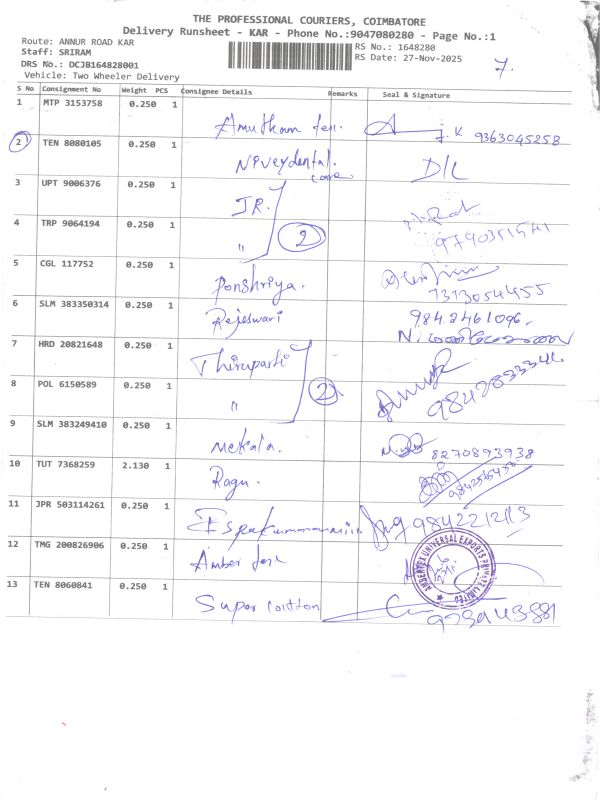 THE PROFESSIONAL COURIERS, COIMBATORE
Delivery Runsheet - KAR - Phone No.:9047080280 - Page No.:1
Route: ANNUR ROAD KAR
RS No.: 1648280
Staff: SRIRAM
RS Date: 27-Nov-2025
7.
DRS No.: DCJB164828001
Vehicle: Two Wheeler Delivery
S No Consignment No Weight PCS Consignee Details Remarks Seal & Signature
1 MTP 3153758 0.250 1
J.K 9363045258
2 TEN 8080105 0.250 1 Niveydental care D/L
3 UPT 9006376 0.250 1 JR.
4 TRP 9064194 0.250 1 " 2
5 CGL 117752 0.250 1 Ponshriya.
6 SLM 383350314 0.250 1 Rejeswari 984.2461096.
7 HRD 20821648 0.250 1 Thiruparti
8 POL 6150589 0.250 1 " 2
9 SLM 383249410 0.250 1 Mekala. 8270893938
10 TUT 7368259 2.130 1 Ragu.
11 JPR 503114261 0.250 1
12 TMG 200826906 0.250 1 Amber
AMBERTEX UNIVERSAL EXPORTS PRIVATE LIMITED
13 TEN 8060841 0.250 1 Super cotton